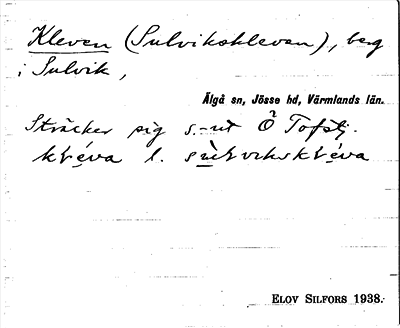 Kleven (Sulvikskleven), berg
i Sulvik,
Älgå sn, Jösse hd, Värmlands län.
Sträcker sig s.-ut Ö Tofstj.
kle̗va l. sulvikskle̗va
ELOV SILFORS 1938.